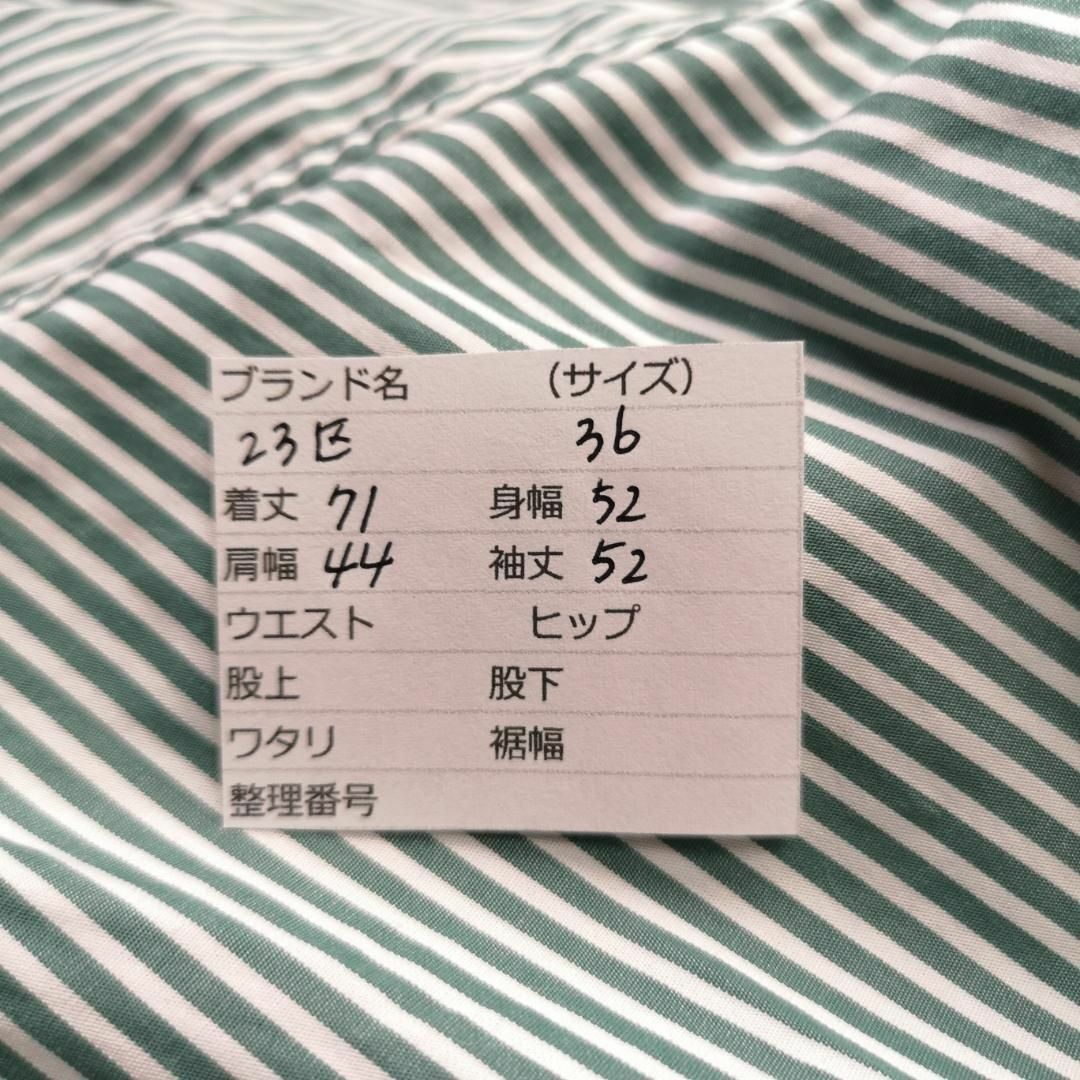 ブランド名 （サイズ）
23区 36
着丈 71 身幅 52
肩幅 44 袖丈 52
ウエスト ヒップ
股上 股下
ワタリ 裾幅
整理番号